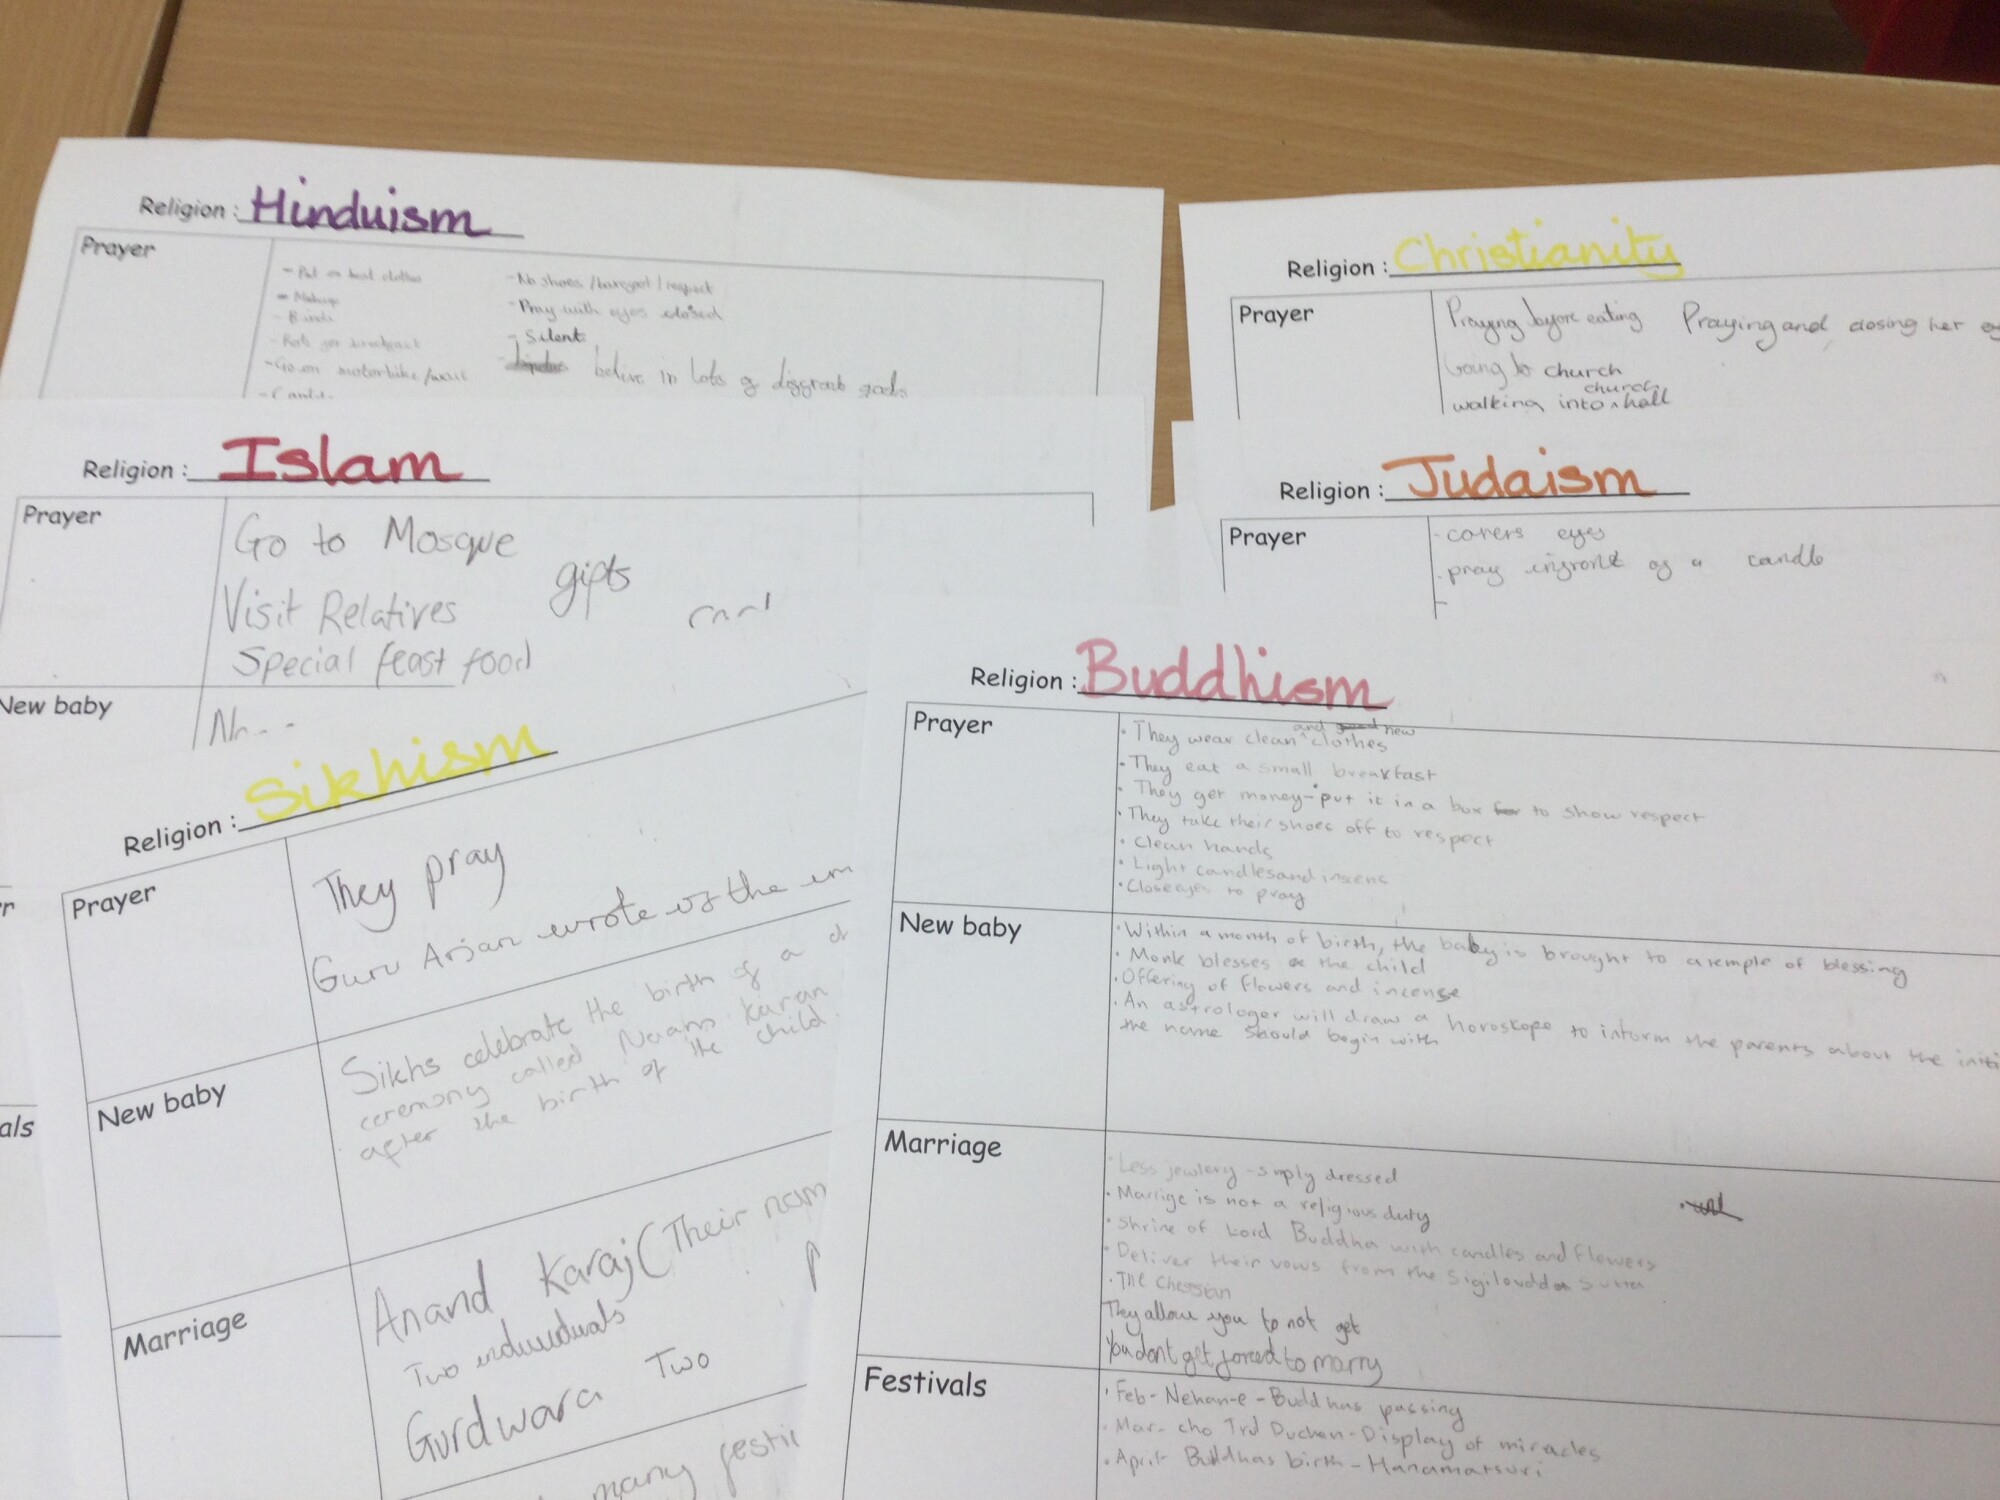 Religion : Hinduism
Prayer
- Put on best clothes
- Makeup
- Bindi
- for breakfast
- Go on motorbike/walk
- No shoes / barefoot / respect
- Pray with eyes closed
- Silent
- belive in lots of diffrent gods
Religion : Christianity
Prayer
Praying before eating Praying and closing her
Going to church
walking into church hall
Religion : Islam
Prayer
Go to Mosque
gifts
Visit Relatives
Special feast food
New baby
Religion : Judaism
Prayer
- covers eyes
- pray infront of a candle
Religion : Sikhism
Prayer
They pray
Guru Arjan wrote of the
New baby
Sikhs celebrate the birth of a
ceremony called Naam Karan
after the birth of the child.
Marriage
Anand Karaj (Their
Two individuals
Gurdwara Two
many
Religion : Buddhism
Prayer
• They wear clean and new clothes
• They eat a small breakfast
• They get money - put it in a box to show respect
• They take their shoes off to respect
• Clean hands
• Light candles and insens
• Close eyes to pray
New baby
• Within a month of birth, the baby is brought to a temple of blessing
• Monk blesses the child
• Offering of flowers and incense
• An astrologer will draw a horoskope to inform the parents about the
the name should begin with
Marriage
• Less jewlery - simply dressed
• Marrige is not a religious duty
• Shrine of Lord Buddha with candles and flowers
• Deliver their vows from the Sigiloudda Sutta
• The
They allow you to not get
You dont get forced to marry
Festivals
• Feb - Nehan-e - Buddhas passing
• Mar - cho Trul Duchen - Display of miracles
• April - Buddhas birth - Hanamatsuri
als